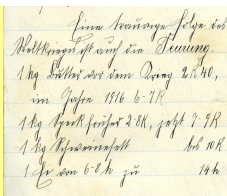 Eine traurige Folge des
Weltkrieges ist auch die Teuerung.
1 kg Butter vor dem Krieg 2.K 40,
im Jahre 1916 6-7 K
1 kg Speck früher 2·8 K, jetzt 7-9 K
1 kg Schweinefett bis 10 K
1 Ei von 6-8 h zu 14 h.